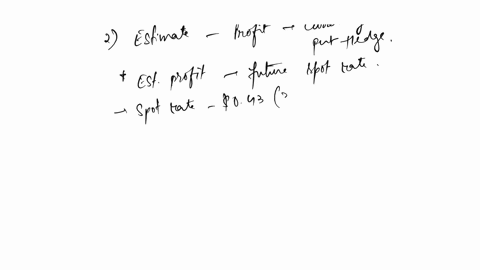 2) Estimate - Profit →
put Hedge.
* Est. profit → future spot rate.
→ Spot rate - $0.43 (